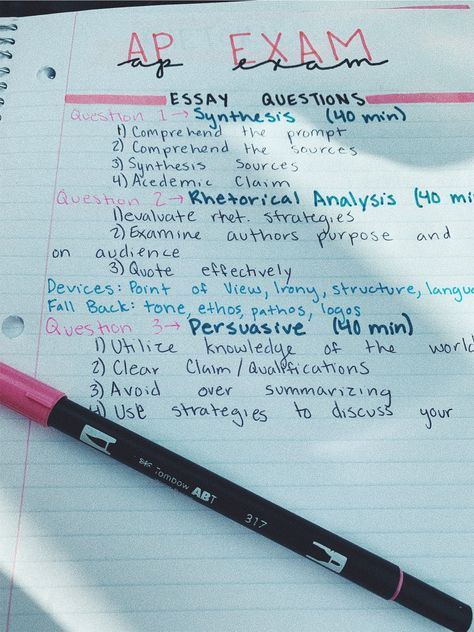 AP EXAM
ap exam
ESSAY QUESTIONS
Question 1 → Synthesis (40 min)
1) Comprehend the prompt
2) Comprehend the sources
3) Synthesis sources
4) Acedemic Claim
Question 2 → Rhetorical Analysis (40 min
1) evaluate rhet. strategies
2) Examine authors purpose and
on audience
3) Quote effectively
Devices: Point of View, Irony, structure, langua
Fall Back: tone, ethos, pathos, logos
Question 3 → Persuasive (40 min)
1) Utilize knowledge of the world
2) Clear Claim/Qualifications
3) Avoid over summarizing
4) Use strategies to discuss your
Tombow ABT
317